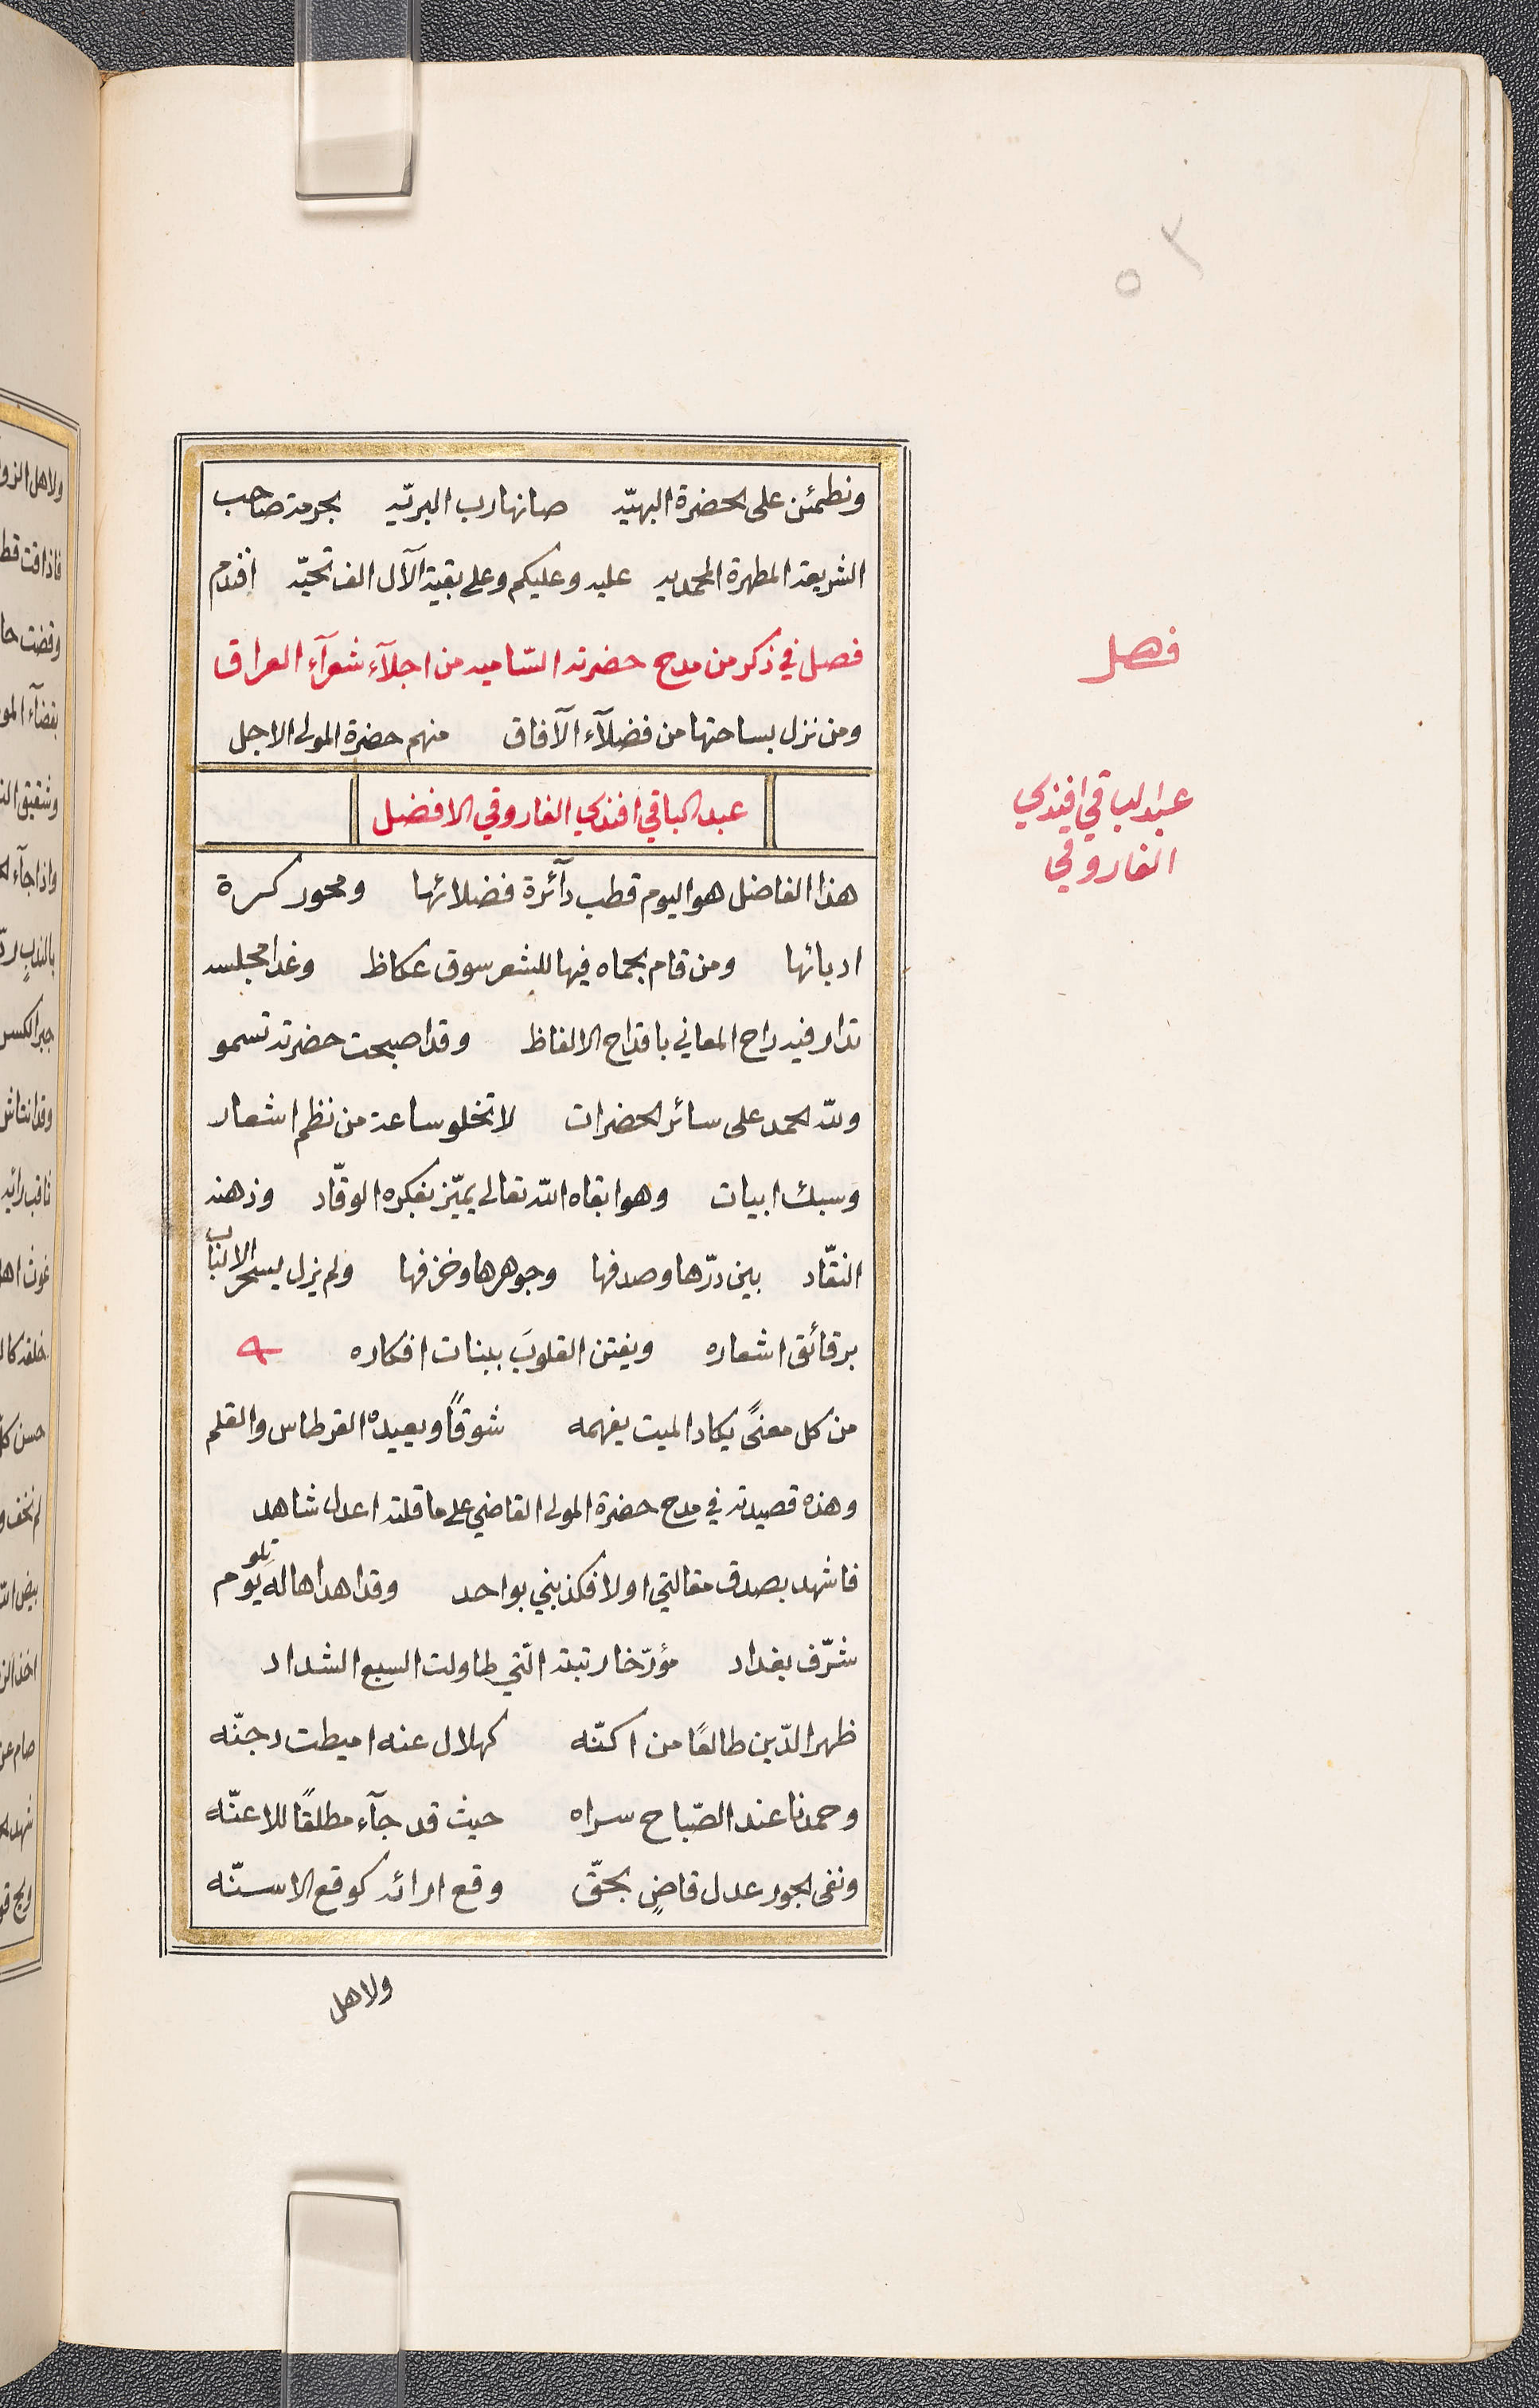 ٥٢
ونطمئن على الحضرة البهيّه صانها رب البريّه بحرمة صاحب
الشريعة المطهرة المحمديه عليه وعليكم وعلى بقية الآل الف تحيّه افندم
فصل في ذكر من مدح حضرته السّاميه من اجلآء شعرآء العراق
ومن نزل بساحتها من فضلآء الآفاق منهم حضرة المولى الاجل
عبد الباقي افندي الفاروقي الافضل
هذا الفاضل هو اليوم قطب دآئرة فضلائها ومحور كرة
ادبائها ومن قام بحماه فيها للشعر سوق عكاظ وغدا مجلسه
تدار فيه راح المعاني باقداح الالفاظ وقد اصبحت حضرته تسمو
ولله الحمد على سائر الحضرات لا تخلو ساعة من نظم اشعار
وسبك ابيات وهو ابقاه الله تعالى يميّز بفكره الوقّاد وذهنه
النقّاد بين درّها وصدفها وجوهرها وخزفها ولم يزل يسحر الالباب
برقائق اشعاره ويفتن القلوبَ ببنات افكاره
من كل معنىً يكاد الميت يفهمه شوقًا ويعيده القرطاس والقلم
وهذه قصيدته في مدح حضرة المولى القاضي على ما قلته اعدل شاهد
فاشهد بصدق مقالتي اولا فكذبني بواحد وقد اهداها له تلو يوم
شرّف بغداد مؤرّخا رتبته الّتي طاولت السبع الشداد
ظهر الدّين طالعًا من اكنّه كهلال عنه اميطت دجنّه
وحمدنا عند الصّباح سراه حيث قد جآء مطلقًا للاعنّه
ونفى الجور عدل قاضٍ بحقّ وقع ارائه كوقع الاسنّه
ولاهل
فصل
عبد الباقي افندي
الفاروقي